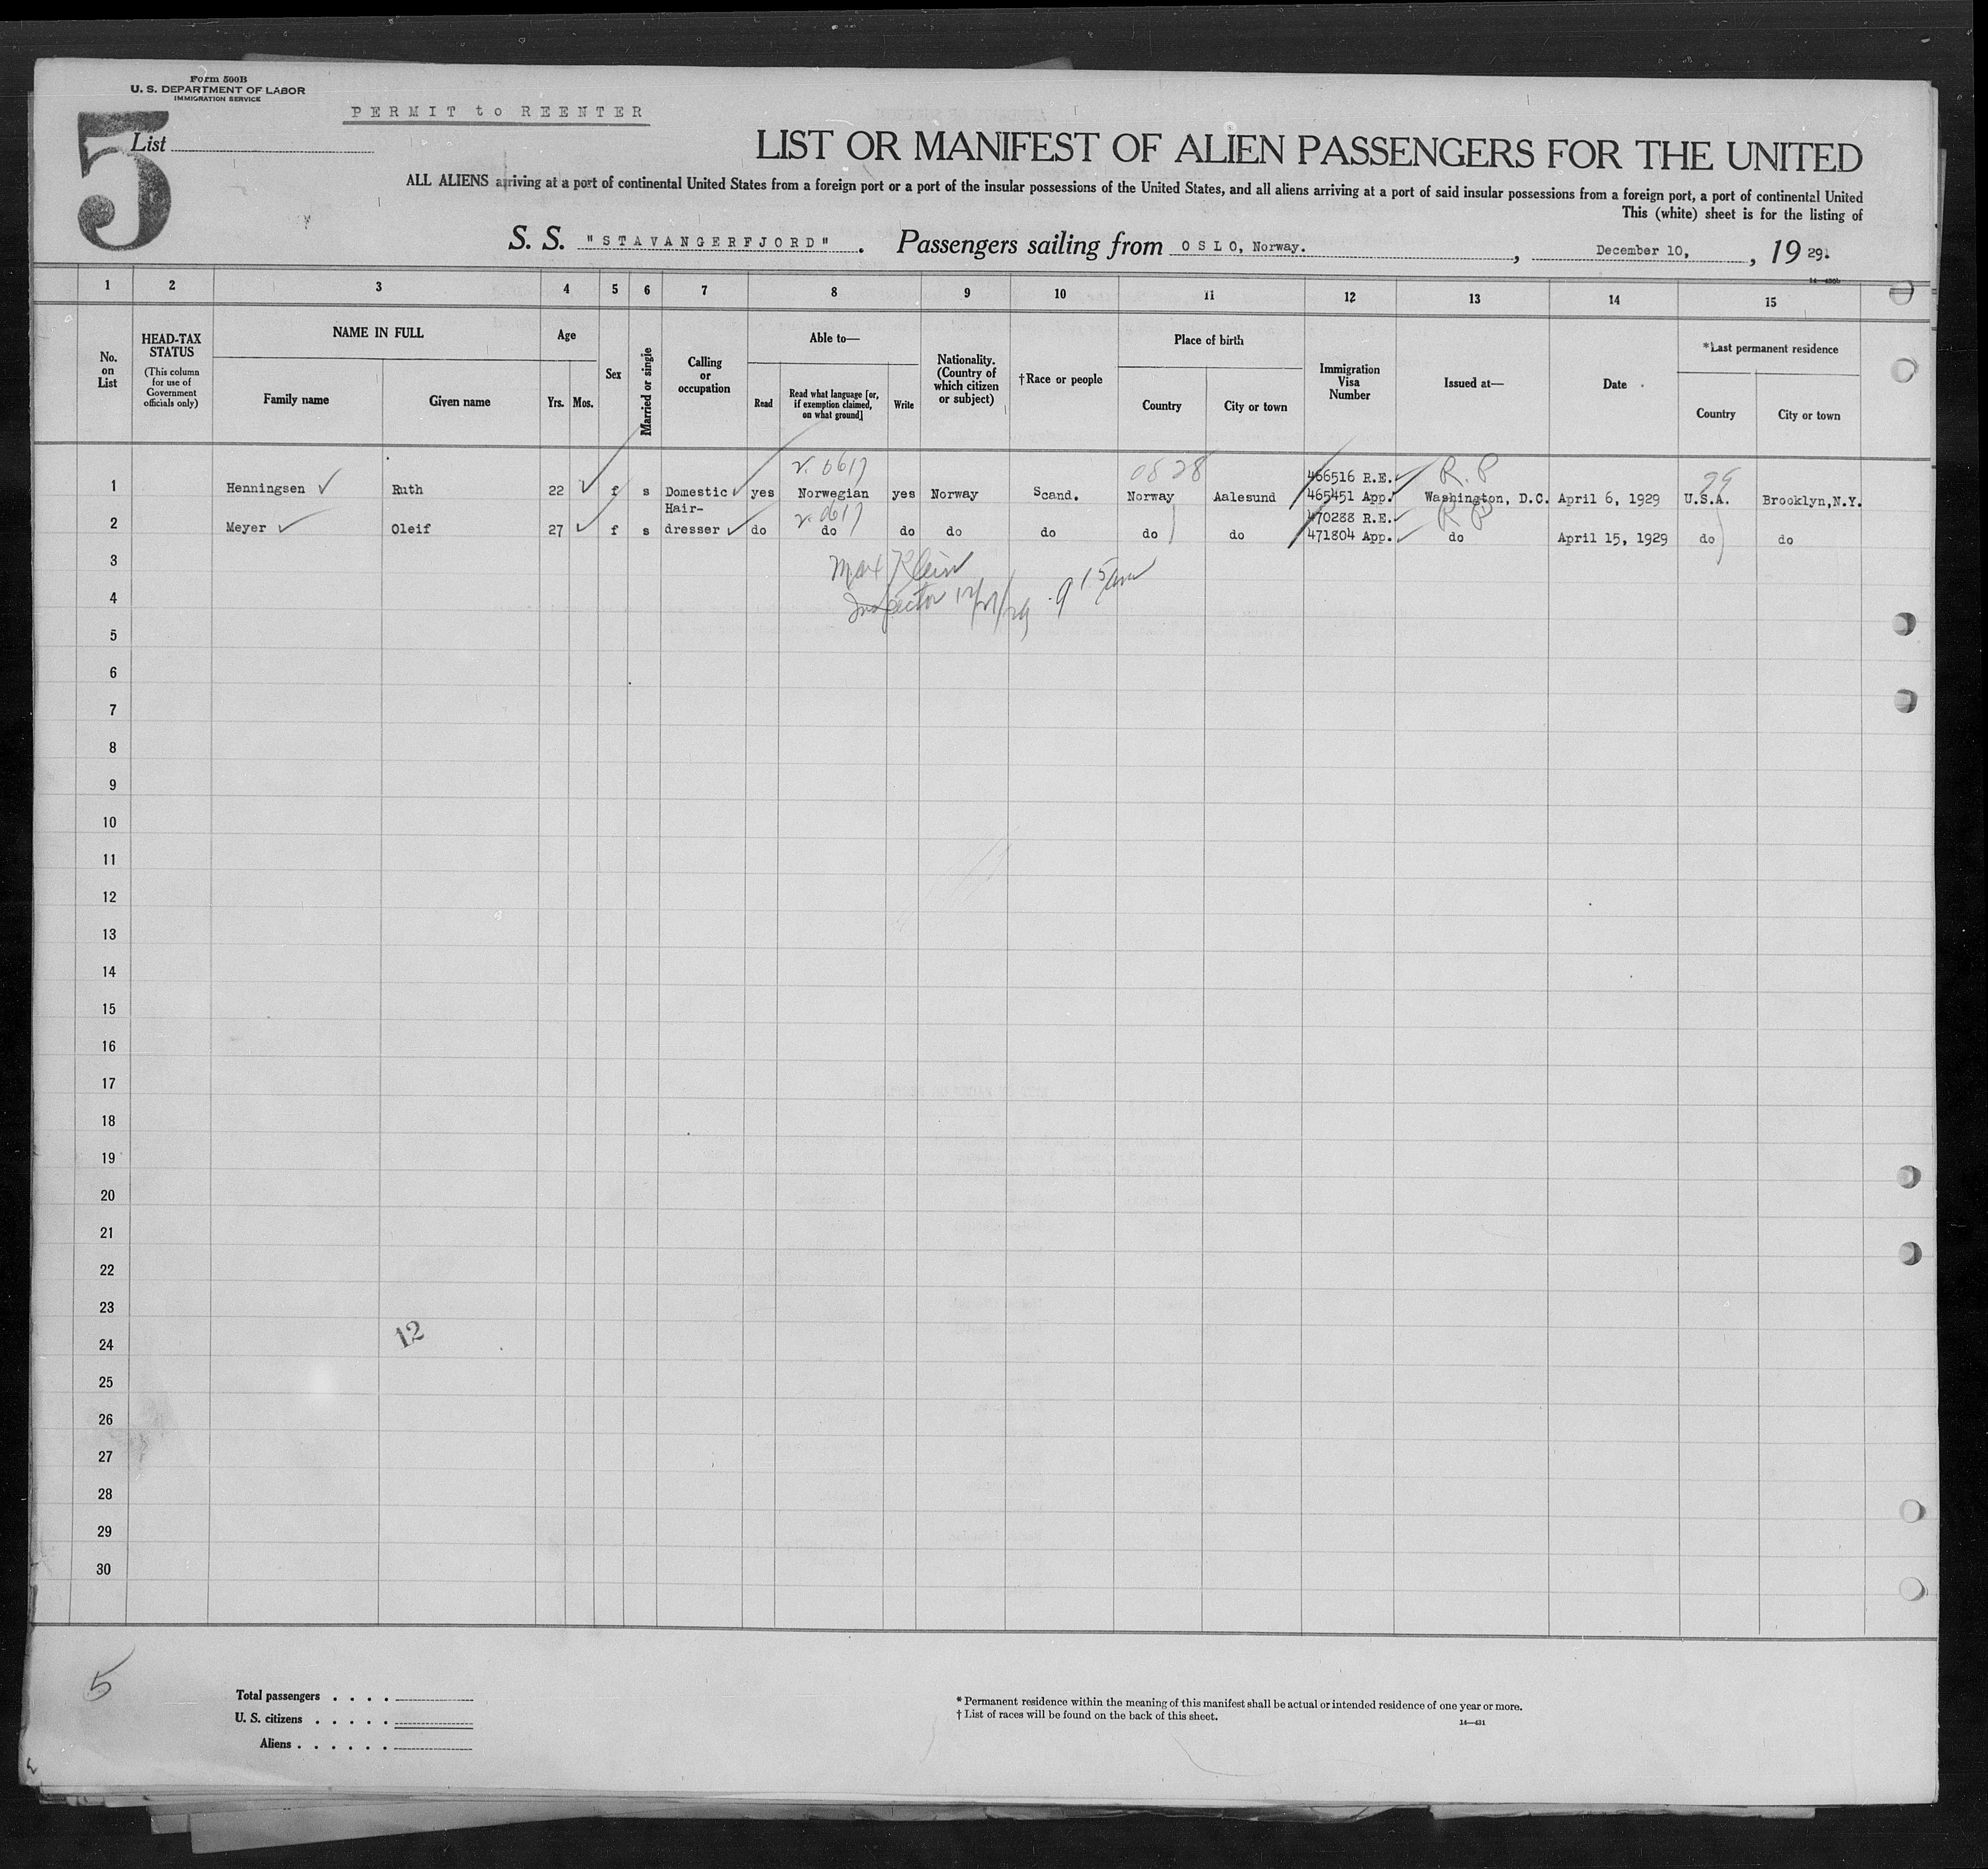 Form 500B
U. S. DEPARTMENT OF LABOR
IMMIGRATION SERVICE
PERMIT to REENTER
5
List
LIST OR MANIFEST OF ALIEN PASSENGERS FOR THE UNITED
ALL ALIENS arriving at a port of continental United States from a foreign port or a port of the insular possessions of the United States, and all aliens arriving at a port of said insular possessions from a foreign port, a port of continental United
This (white) sheet is for the listing of
S. S. "STAVANGERFJORD". Passengers sailing from OSLO, Norway., December 10, , 19 29.
1 2 3 4 5 6 7 8 9 10 11 12 13 14 15
No. on List
HEAD-TAX STATUS
(This column for use of Government officials only)
NAME IN FULL
Family name Given name
Age
Yrs. Mos.
Sex
Married or single
Calling or occupation
Able to—
Read
Read what language [or, if exemption claimed, on what ground]
Write
Nationality. (Country of which citizen or subject)
†Race or people
Place of birth
Country City or town
Immigration Visa Number
Issued at—
Date
*Last permanent residence
Country City or town
v. 0617 0528 466516 R.E. R.P 99
1 Henningsen Ruth 22 f s Domestic yes Norwegian yes Norway Scand. Norway Aalesund 465451 App. Washington, D.C. April 6, 1929 U.S.A. Brooklyn,N.Y.
Hair- v. 0617 470288 R.E. R P
2 Meyer Oleif 27 f s dresser do do do do do do do 471804 App. do April 15, 1929 do do
3
Max Klein
4
Inspector 12/21/29 9 15 am
5
6
7
8
9
10
11
12
13
14
15
16
17
18
19
20
21
22
23
12
24
25
26
27
28
29
30
5
Total passengers . . . .
U. S. citizens . . . . .
Aliens . . . . . .
* Permanent residence within the meaning of this manifest shall be actual or intended residence of one year or more.
† List of races will be found on the back of this sheet.
14—431